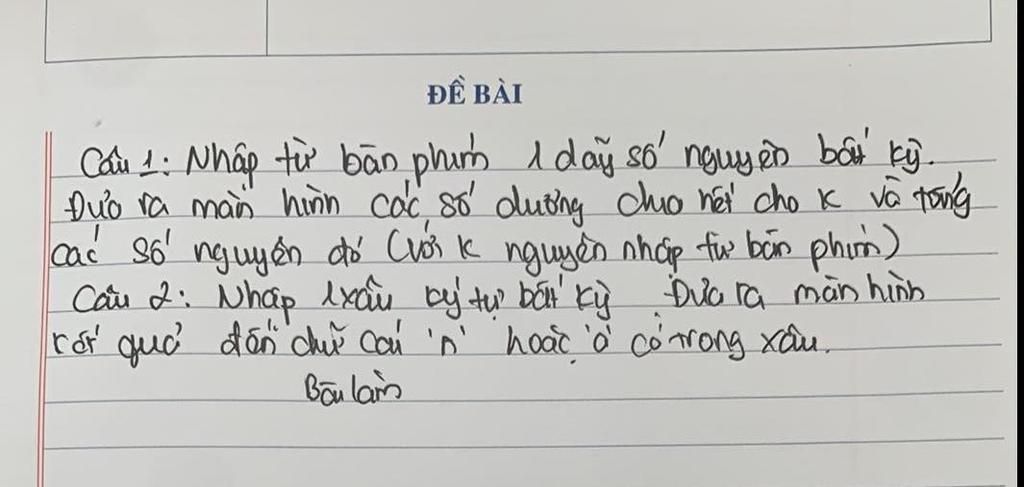 ĐỀ BÀI
Câu 1: Nhập từ bàn phím 1 dãy số nguyên bất kỳ.
Đưa ra màn hình các số dương chia hết cho K và tổng
các số nguyên đó (với K nguyên nhập từ bàn phím)
Câu 2: Nhập 1 xâu ký tự bất kỳ Đưa ra màn hình
kết quả đếm chữ cái 'n' hoặc 'a' có trong xâu.
Bài làm